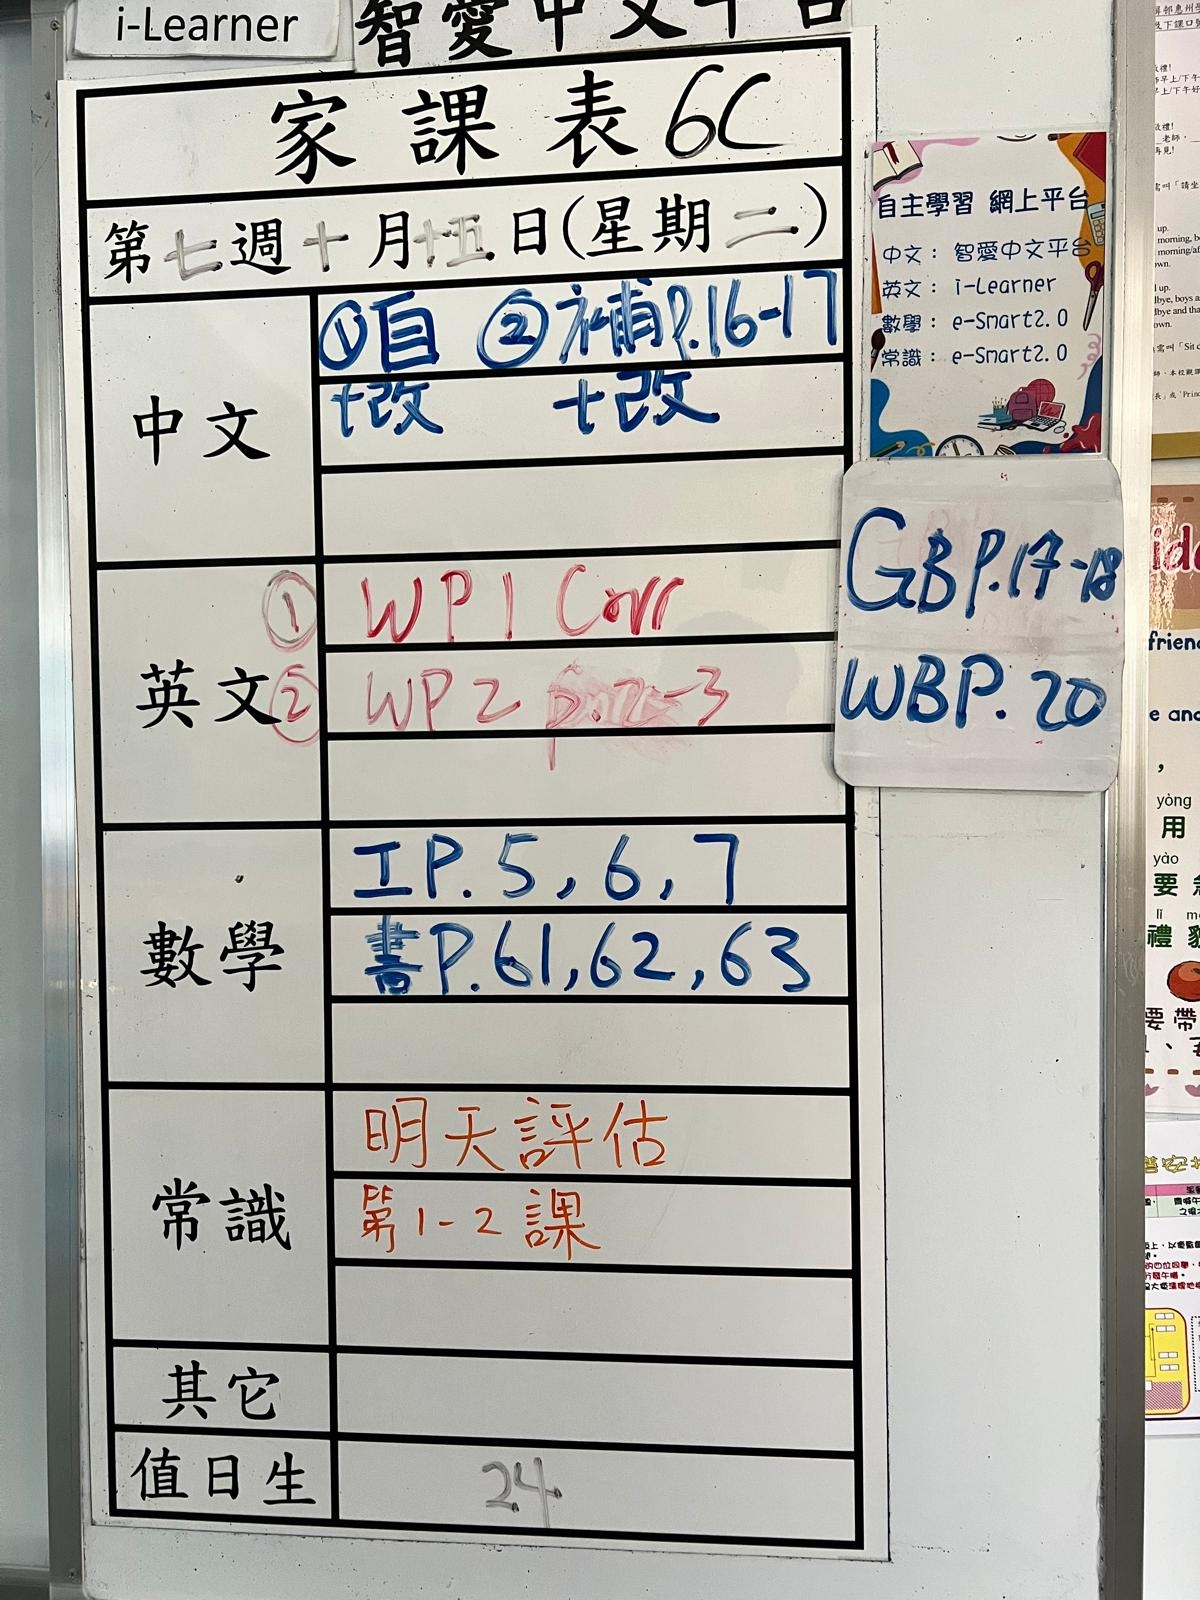 i-Learner
智愛中文平台
家課表 6C
第七週十月十五日(星期二)
中文
①自 ②補P.16-17
+改 +改
英文
① WP1 Corr
② WP2 p.2-3
GBP.17-18
WBP.20
數學
工P.5,6,7
書P.61,62,63
常識
明天評估
第1-2課
其它
值日生
24
自主學習 網上平台
中文：智愛中文平台
英文：i-Learner
數學：e-Smart2.0
常識：e-Smart2.0
friend
e and
yòng
用
yào
要
lǐ
禮貌
要帶